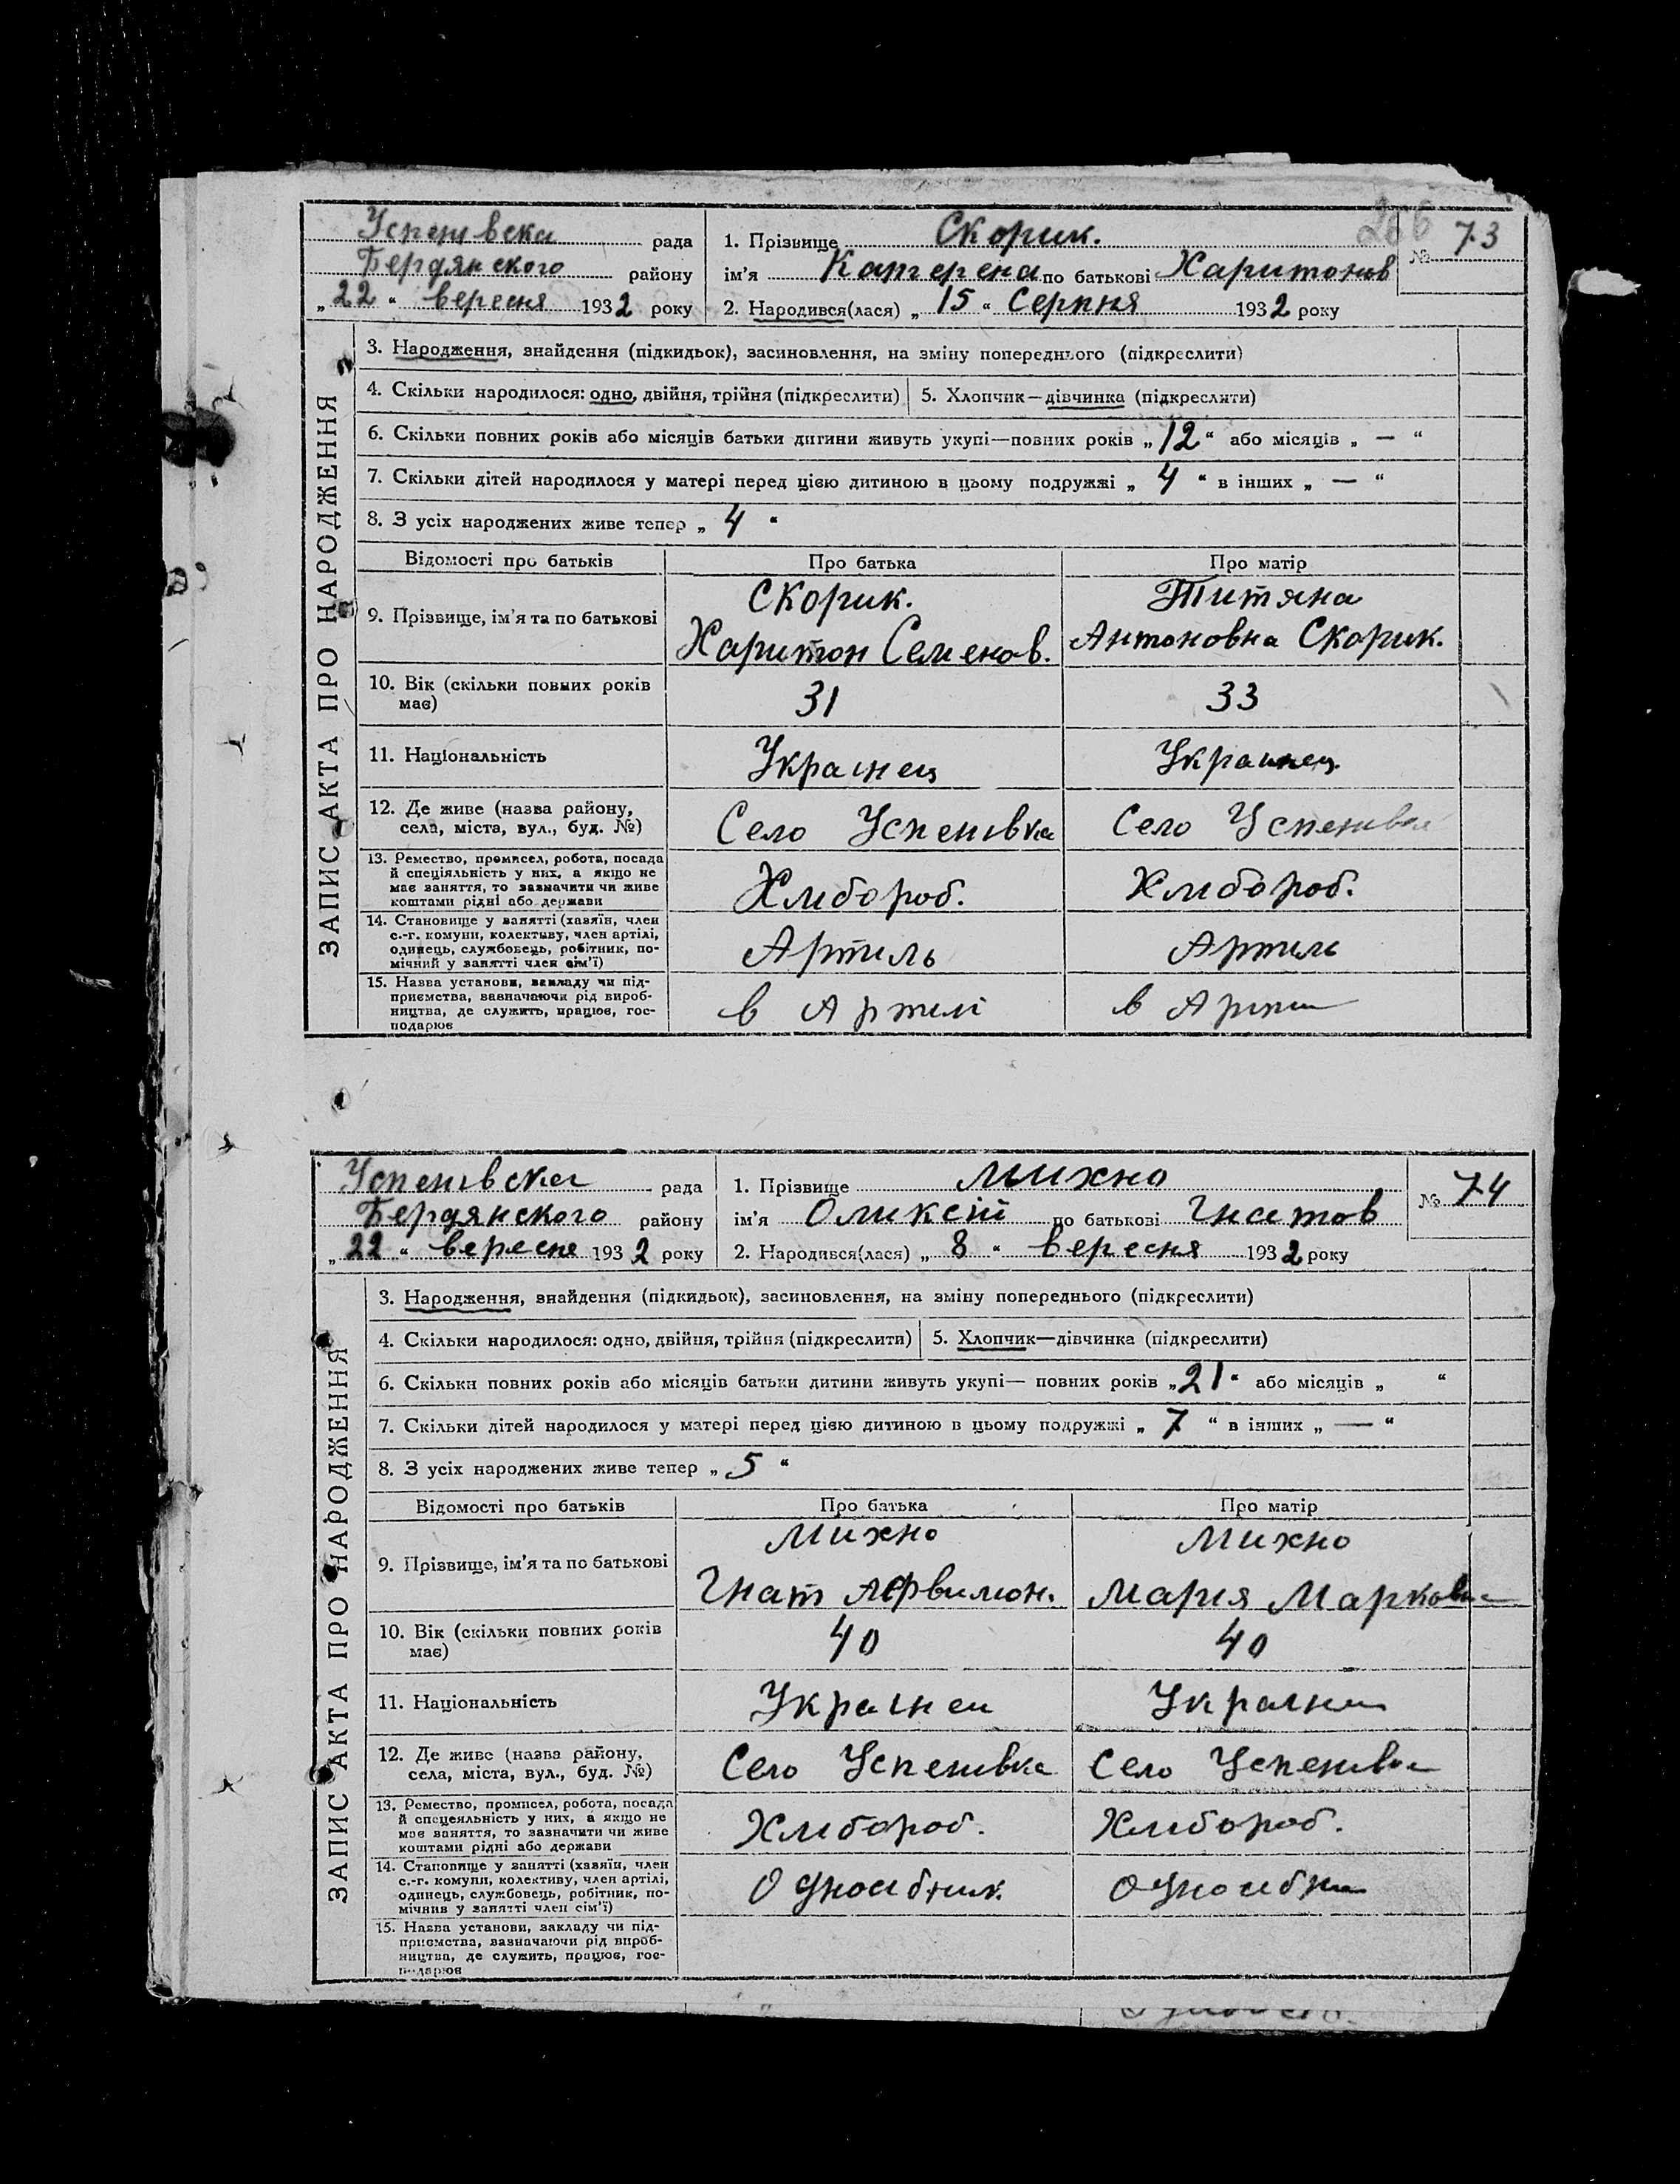 266
Успенівска рада
Бердянского району
„22“ вересня 1932 року
1. Прізвище Скорик.
№ 73
ім'я Катерена по батькові Харитонов
2. Народився(лася) „15“ Серпня 1932 року
ЗАПИС АКТА ПРО НАРОДЖЕННЯ
3. Народження, знайдення (підкидьок), засиновлення, на зміну попереднього (підкреслити)
4. Скільки народилося: одно, двійня, трійня (підкреслити)
5. Хлопчик—дівчинка (підкреслити)
6. Скільки повних років або місяців батьки дитини живуть укупі—повних років „12“ або місяців „—“
7. Скільки дітей народилося у матері перед цією дитиною в цьому подружжі „4“ в інших „—“
8. З усіх народжених живе тепер „4“
Відомості про батьків Про батька Про матір
9. Прізвище, ім'я та по батькові
Скорик.
Харитон Семенов.
Титяна
Антоновна Скорик.
10. Вік (скільки повних років
має)
31
33
11. Національність
Украінец
Украінец
12. Де живе (назва району,
села, міста, вул., буд. №)
Село Успенівка
Село Успенівка
13. Ремество, промисел, робота, посада
й спеціяльність у них, а якщо не
має заняття, то зазначити чи живе
коштами рідні або держави
Хлибороб.
Хлибороб.
14. Становище у занятті (хазяїн, член
с.-г. комуни, колективу, член артілі,
одинець, службовець, робітник, по-
мічний у занятті член сім'ї)
Артиль
Артиль
15. Назва установи, закладу чи під-
приємства, зазначаючи рід вироб-
ництва, де служить, працює, гос-
подарює
в Артилі
в
Успенівска рада
Бердянского району
„22“ вересне 1932 року
1. Прізвище Михно
№ 74
ім'я Оликсій по батькові Гнатов
2. Народився(лася) „8“ вересня 1932 року
ЗАПИС АКТА ПРО НАРОДЖЕННЯ
3. Народження, знайдення (підкидьок), засиновлення, на зміну попереднього (підкреслити)
4. Скільки народилося: одно, двійня, трійня (підкреслити)
5. Хлопчик—дівчинка (підкреслити)
6. Скільки повних років або місяців батьки дитини живуть укупі— повних років „21“ або місяців „ “
7. Скільки дітей народилося у матері перед цією дитиною в цьому подружжі „7“ в інших „—“
8. З усіх народжених живе тепер „5“
Відомості про батьків Про батька Про матір
9. Прізвище, ім'я та по батькові
Михно
Гнат
Михно
Мария Марковна
10. Вік (скільки повних років
має)
40
40
11. Національність
Украінец
Украінец
12. Де живе (назва району,
села, міста, вул., буд. №)
Село Успенівка
Село Успенівка
13. Ремество, промисел, робота, посада
й спецеяльність у них, а якщо не
має заняття, то зазначити чи живе
коштами рідні або держави
Хлибороб.
Хлибороб.
14. Становище у занятті (хазяїн, член
с.-г. комуни, колективу, член артілі,
одинець, службовець, робітник, по-
мічник у занятті член сім'ї)
Одноибник
15. Назва установи, закладу чи під-
приємства, зазначаючи рід вироб-
ництва, де служить, працює, гос-
подарює